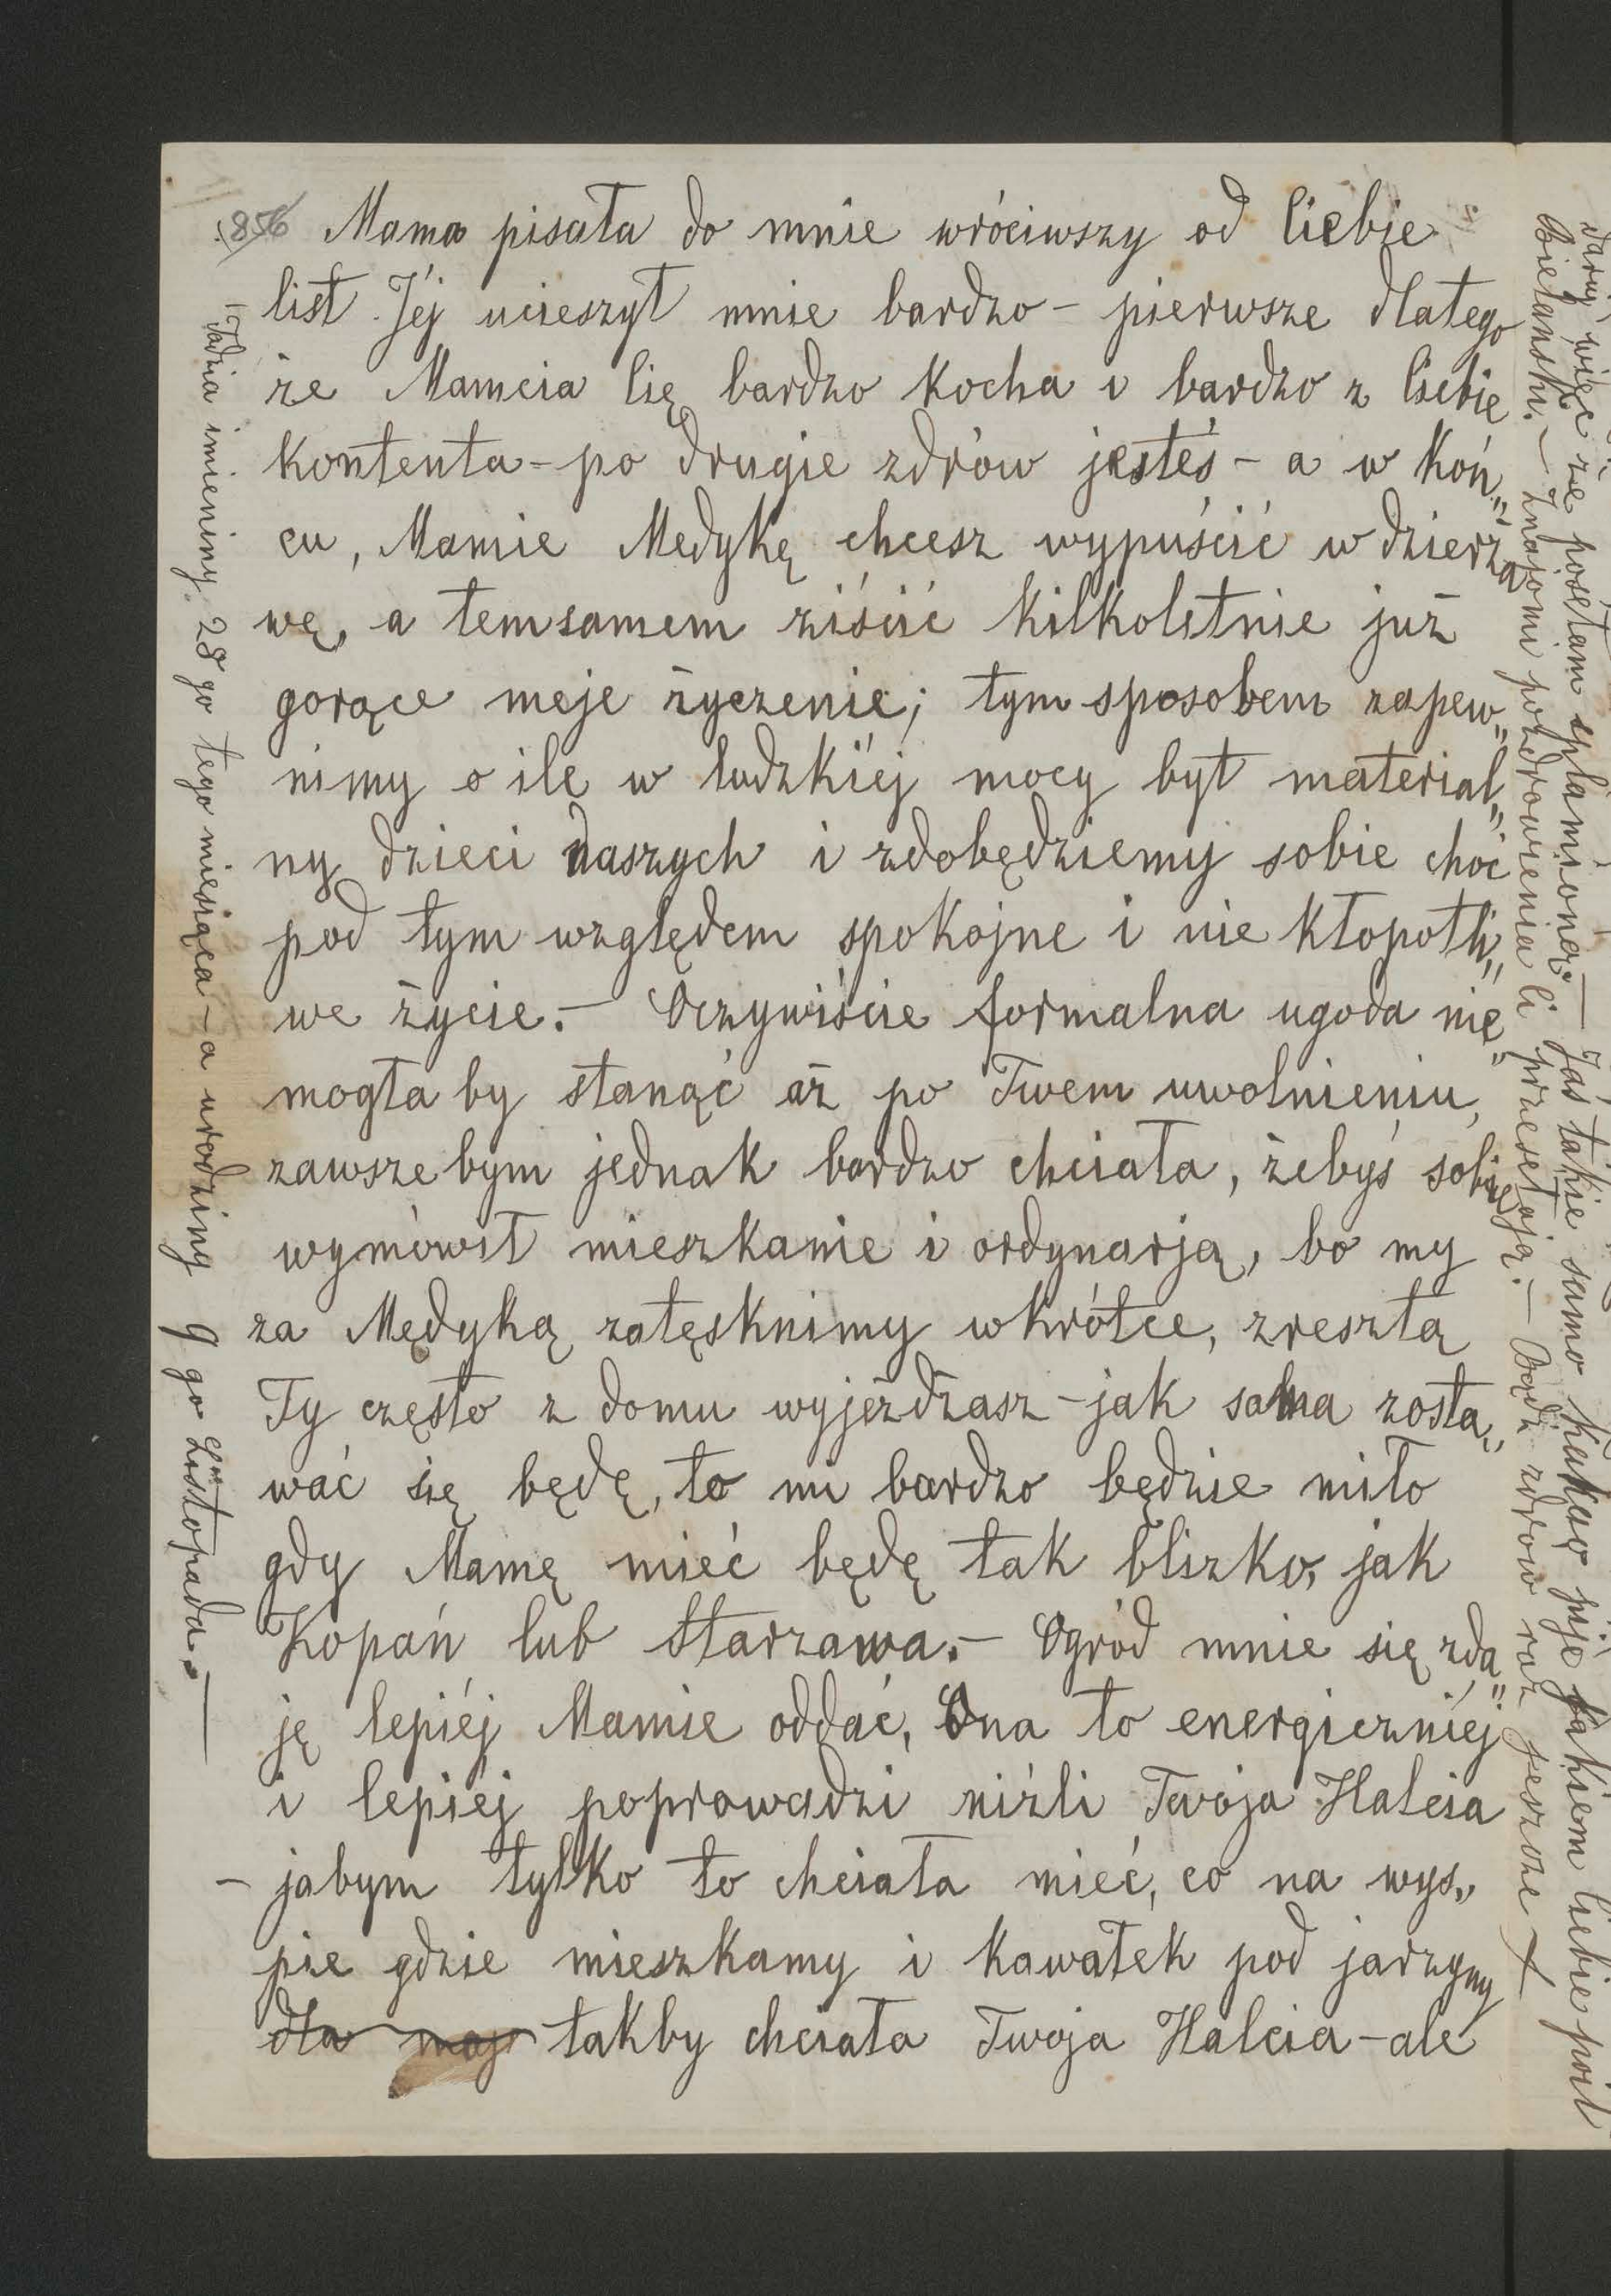 856
Mama pisała do mnie wróciwszy od Ciebie
list Jéj ucieszył mnie bardzo – pierwsze dlatego
że Mamcia Cię bardzo kocha i bardzo z Ciebie
kontenta – po drugie zdrów jesteś – a w koń„
cu, Mamie Medykę chcesz wypuścić w dzierża
wę, a temsamem ziścić kilkoletnie już
gorące moje życzenie; tym sposobem zapew„
nimy o ile w ludzkiéj mocy był material„
ny dzieci naszych i zdobędziemy sobie choć
pod tym względem spokojne i nie kłopotli„
we życie. – Oczywiście formalna ugoda nie„
mogła by stanąć aż po Twem uwolnieniu,
zawsze bym jednak bardzo chciała, żebyś sobie
wymówił mieszkanie i ordynarją, bo my
za Medyką zatęsknimy wkrótce, zresztą
Ty często z domu wyjeżdżasz – jak sama zosta„
wać się będę, to mi bardzo będzie miło
gdy Mamę mieć będę tak blizko, jak
Kopań lub Starzawa. – Ogród mnie się zda„
ję lepiéj Mamie oddać, Ona to energiczniéj
i lepiéj poprowadzi niźli Twoja Halcia
– jabym tylko to chciała mieć, co na wys„
pie gdzie mieszkamy i kawałek pod jarzyny
dla moj takby chciała Twoja Halcia – ale
Tadzia imieniny 28 go tego miesiąca – a urodziny 9 go Listopada. –
daruj więc że posełam splamioną. – Jaś takie samo kakao pije jakiem Ciebie poił
Bielański. – Znajomi pozdrowienia Ci przesełają. – Bądź zdrów raz jeszcze